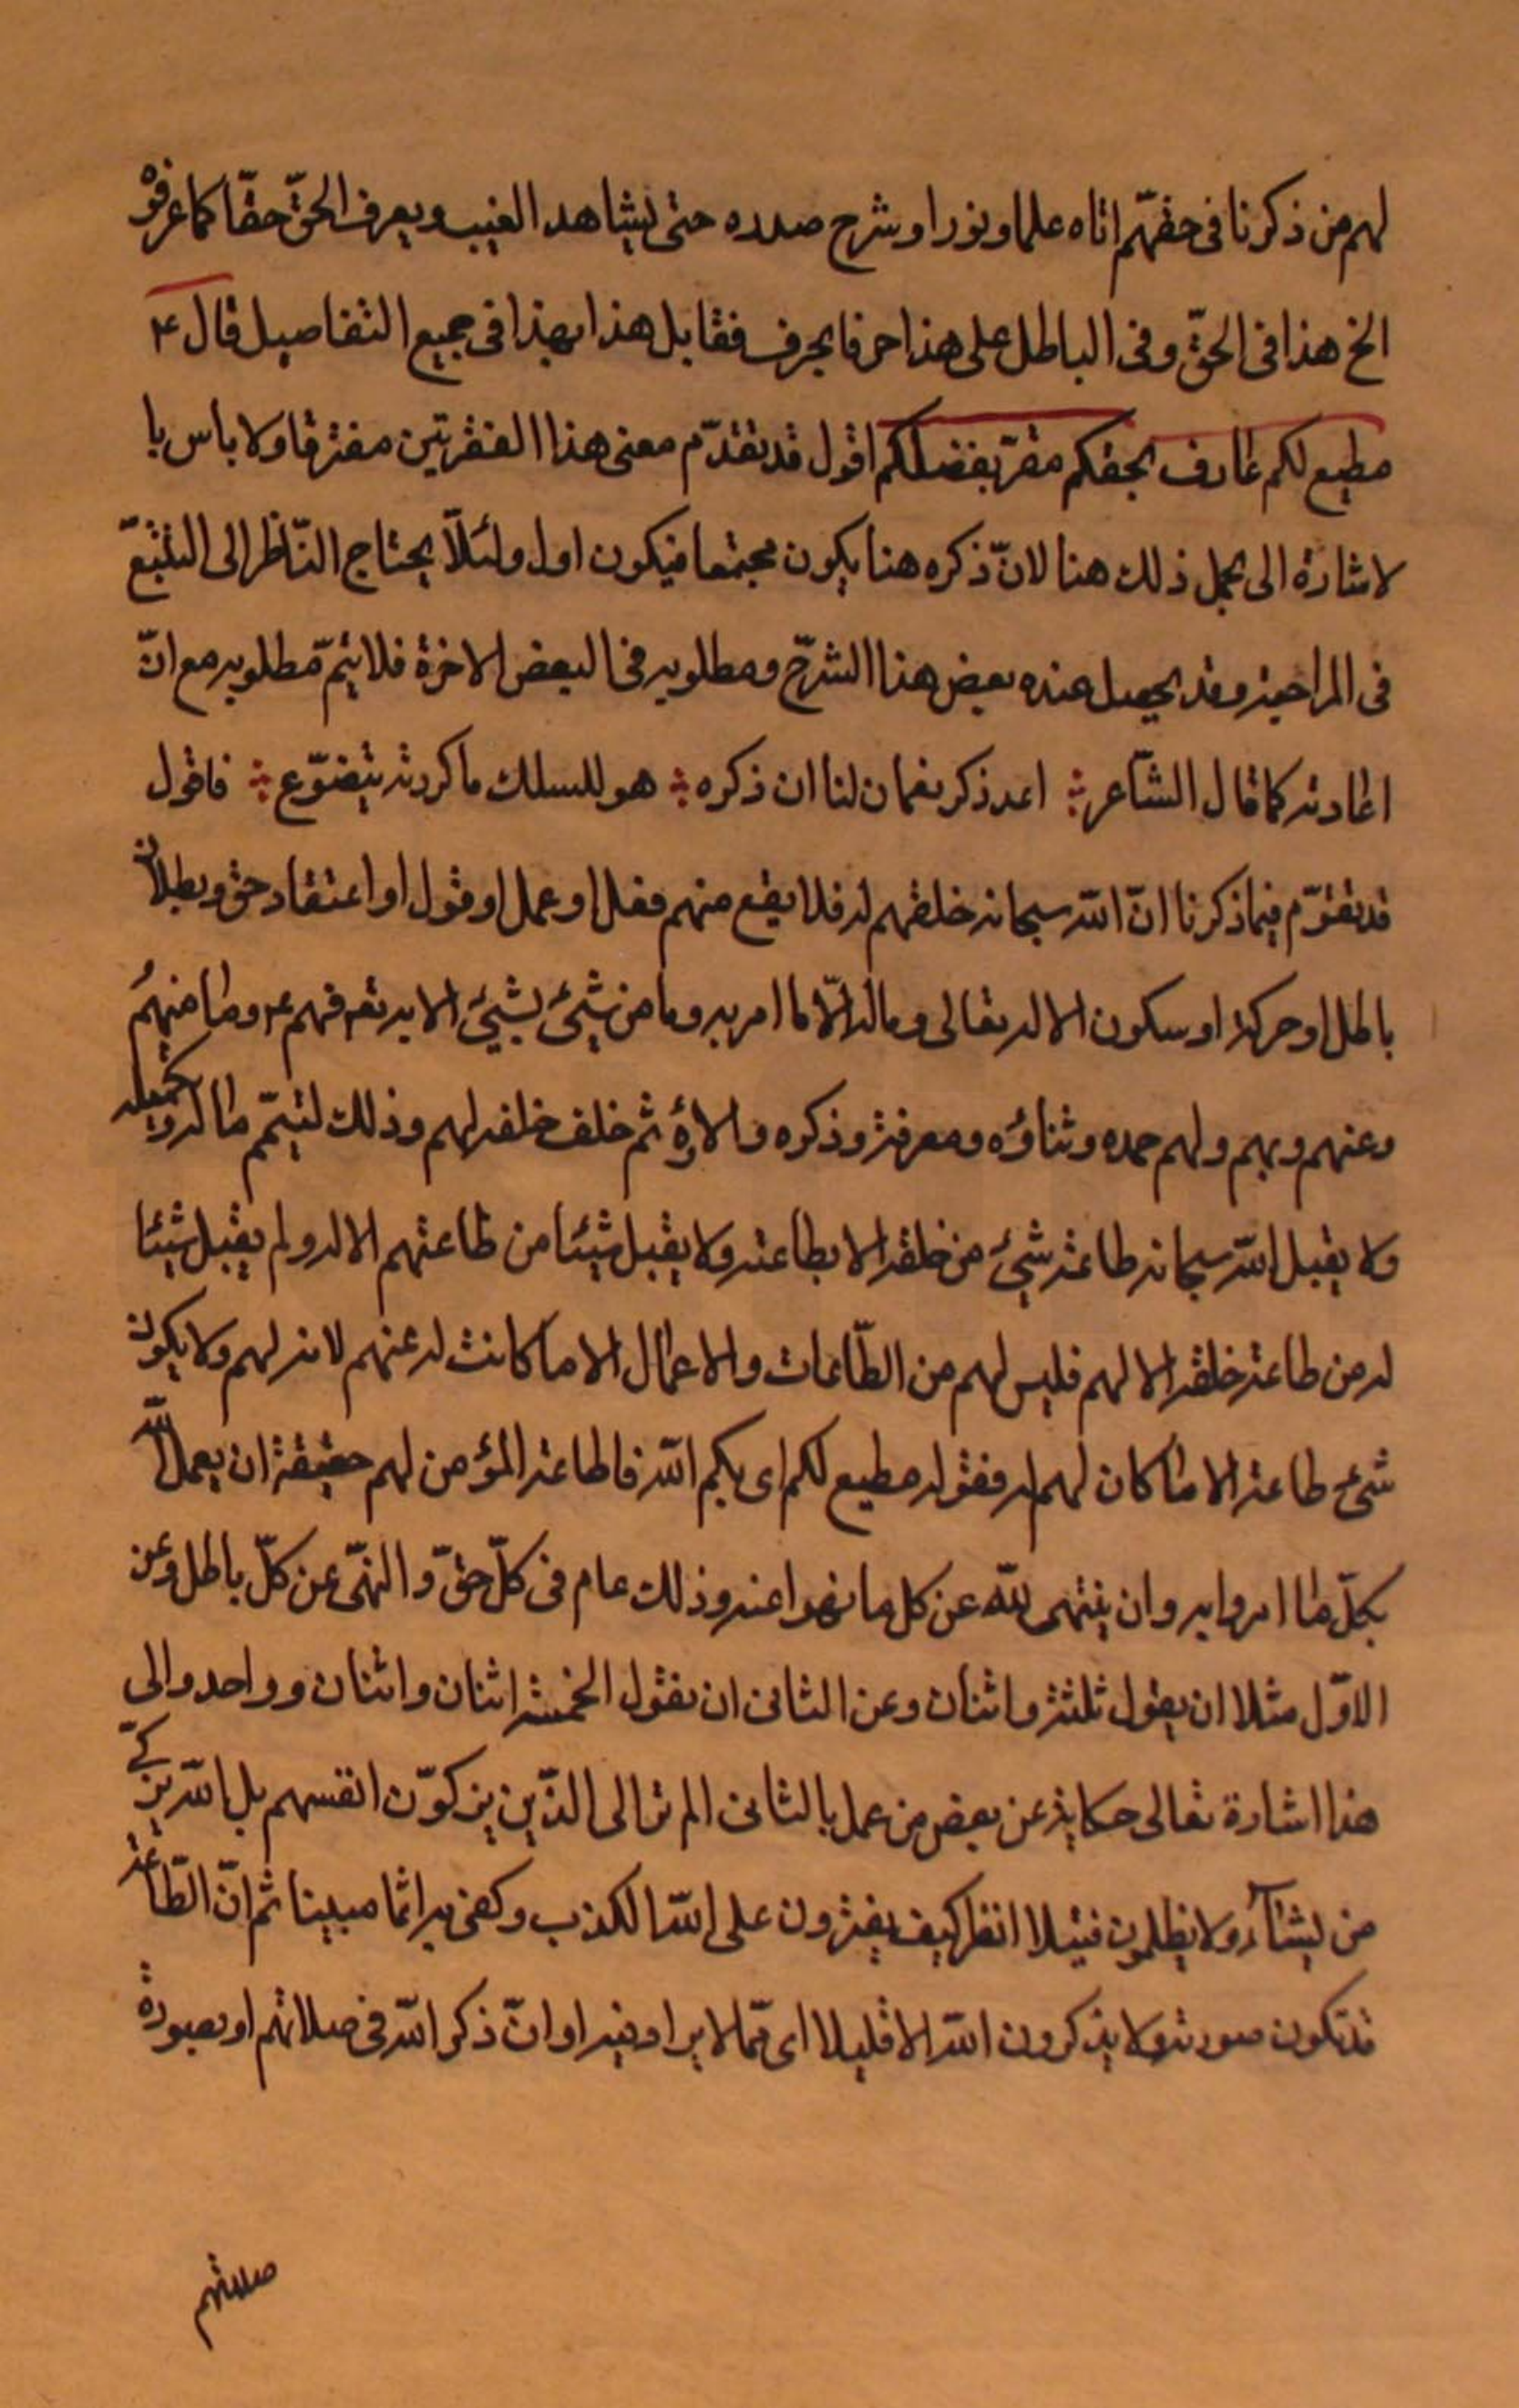 لهم من ذكرنا فى حقهّم اتاه علما و نورا و شرح صدره حتى يشاهد الغيب و يعرف الحقّ حقّا كما عرفوْ
الخ هذا فى الحقّ و فى الباطل على هذا حرفا بحرف فقابل هذا بهذا فى جميع التفاصيل قال ع
مطيع لكم عارف بحقكم مقرّ بفضلكم اقول قد تقدّم معنى هذا الفقرتين مفترقا ولا باس با
لاشارة الى مجمل ذلك هنا لانّ ذكره هنا يكون مجتمعا فيكون اول و لئلّا يحتاج النّاظر الى التتبّع
فى المراجعة و قد يحصل عنده بعض هذا الشرّح و مطلوبه فى البعض الاخرة فلا يتمّ مطلوبه مع انّ
اعادته كما قال الشّاعر ∴ اعد ذكر نعمان لنا ان ذكره ∴ هو للسلك ما كررته يتضوّع ∴ فاقول
قد تقوّم فيما ذكرنا انّ الله سبحانه خلقهم له فلا يقع منهم فعل او عمل او قول او اعتقاد حق و بطلان
باطل او حركة او سكون الا له تعالى و ماله الّا ما امر به و ما من شيئ لشيئ الا به تعـ فهم ع و ما منهمُ
و عنهم و بهم و لهم حمده و ثناؤه و معرفته و ذكره و الاؤه ثم خلف خلقه لهم و ذلك لتيتمّ ما له و بجميله
ولا يقبل الله سبحانه طاعة شيئ من خلقه الا بطاعته ولا يقبل شيئا من طاعتهم الا له و لم يقبل شيئا
له من طاعة خلقه الا لهم فليس لهم من الطّاعات و الاعمال الا ما كانت له عنهم لانه لهم ولا يكون
شئ طاعة الا ما كان لهم له فقوله مطيع لكم اى بكم الله فاطاعة المؤمن لهم حقيقة ان يعمل لله
بكلّ ما امروا به و ان ينتهى لله عن كل ما نهوا عنه و ذلك عام فى كلّ حقّ و النهّى عن كلّ باطل و عن
الاوّل مثلا ان يقول ثلثة و اثنان و عن الثانى ان نقول الخمسة اثنان و اثنان و واحد و الى
هذا اشارة تعالى حكاية عن بعض من عمل بالثانى الم تر الى الذّين يزكوّن انفسهم بل الله يزكّى
من يشآء ولا يظلمون فتيلا انظر كيف يفترون على الله الكذب و كفى به اثما مبينا ثم انّ الطّاعة
قد تكون صورة ولا يذكرون الله الا قليلا اى ممّا لا يراد فيه او انّ ذكر الله فى صلاتهم او بصورة
صلاتهم